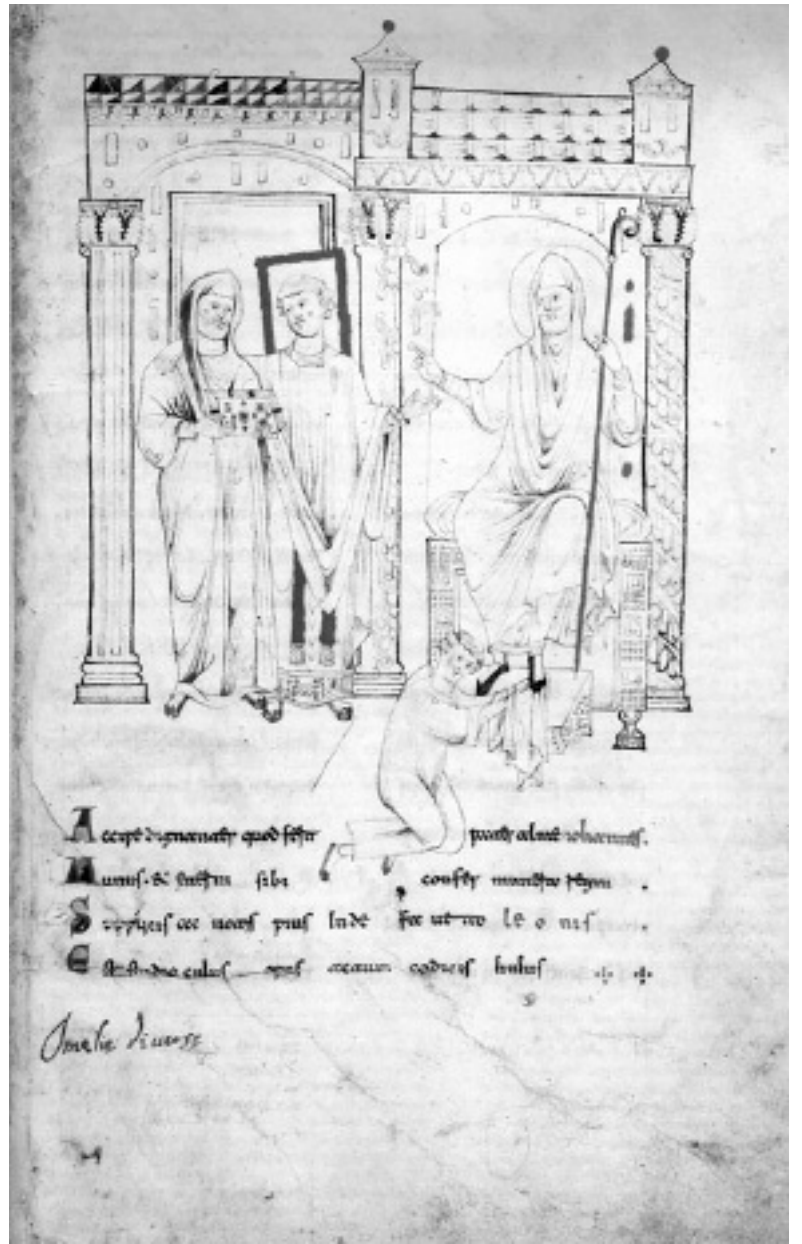 Accipe dignanter quod fert pater alme iohannes.
Munus. & sibi confer
Supplicis ac uotis pius Inde faueto leonis
Est studio cuius opus actum codicis huius
Omelie diverse